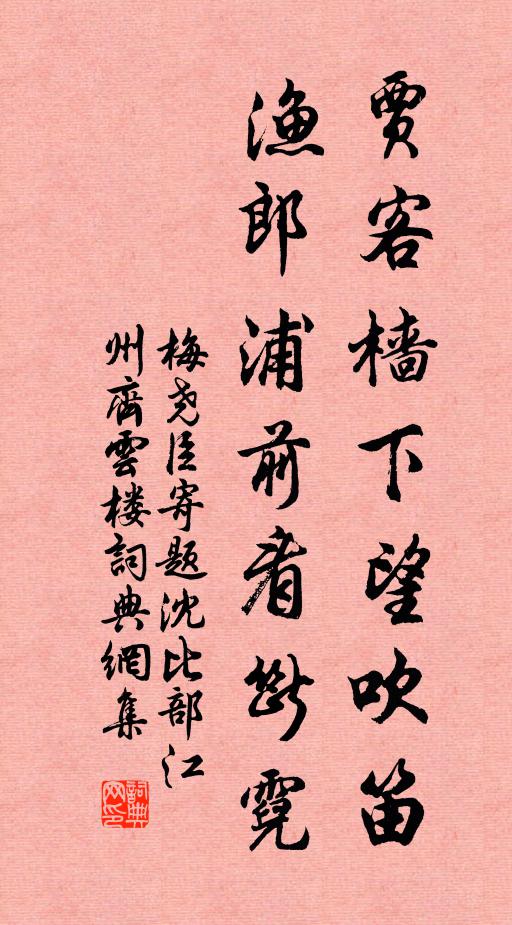 賈客檣下望吹笛
漁郎浦前看斷霓
梅尧臣寄题沈比部江
州齊雲楼詞典網集
詞典网印